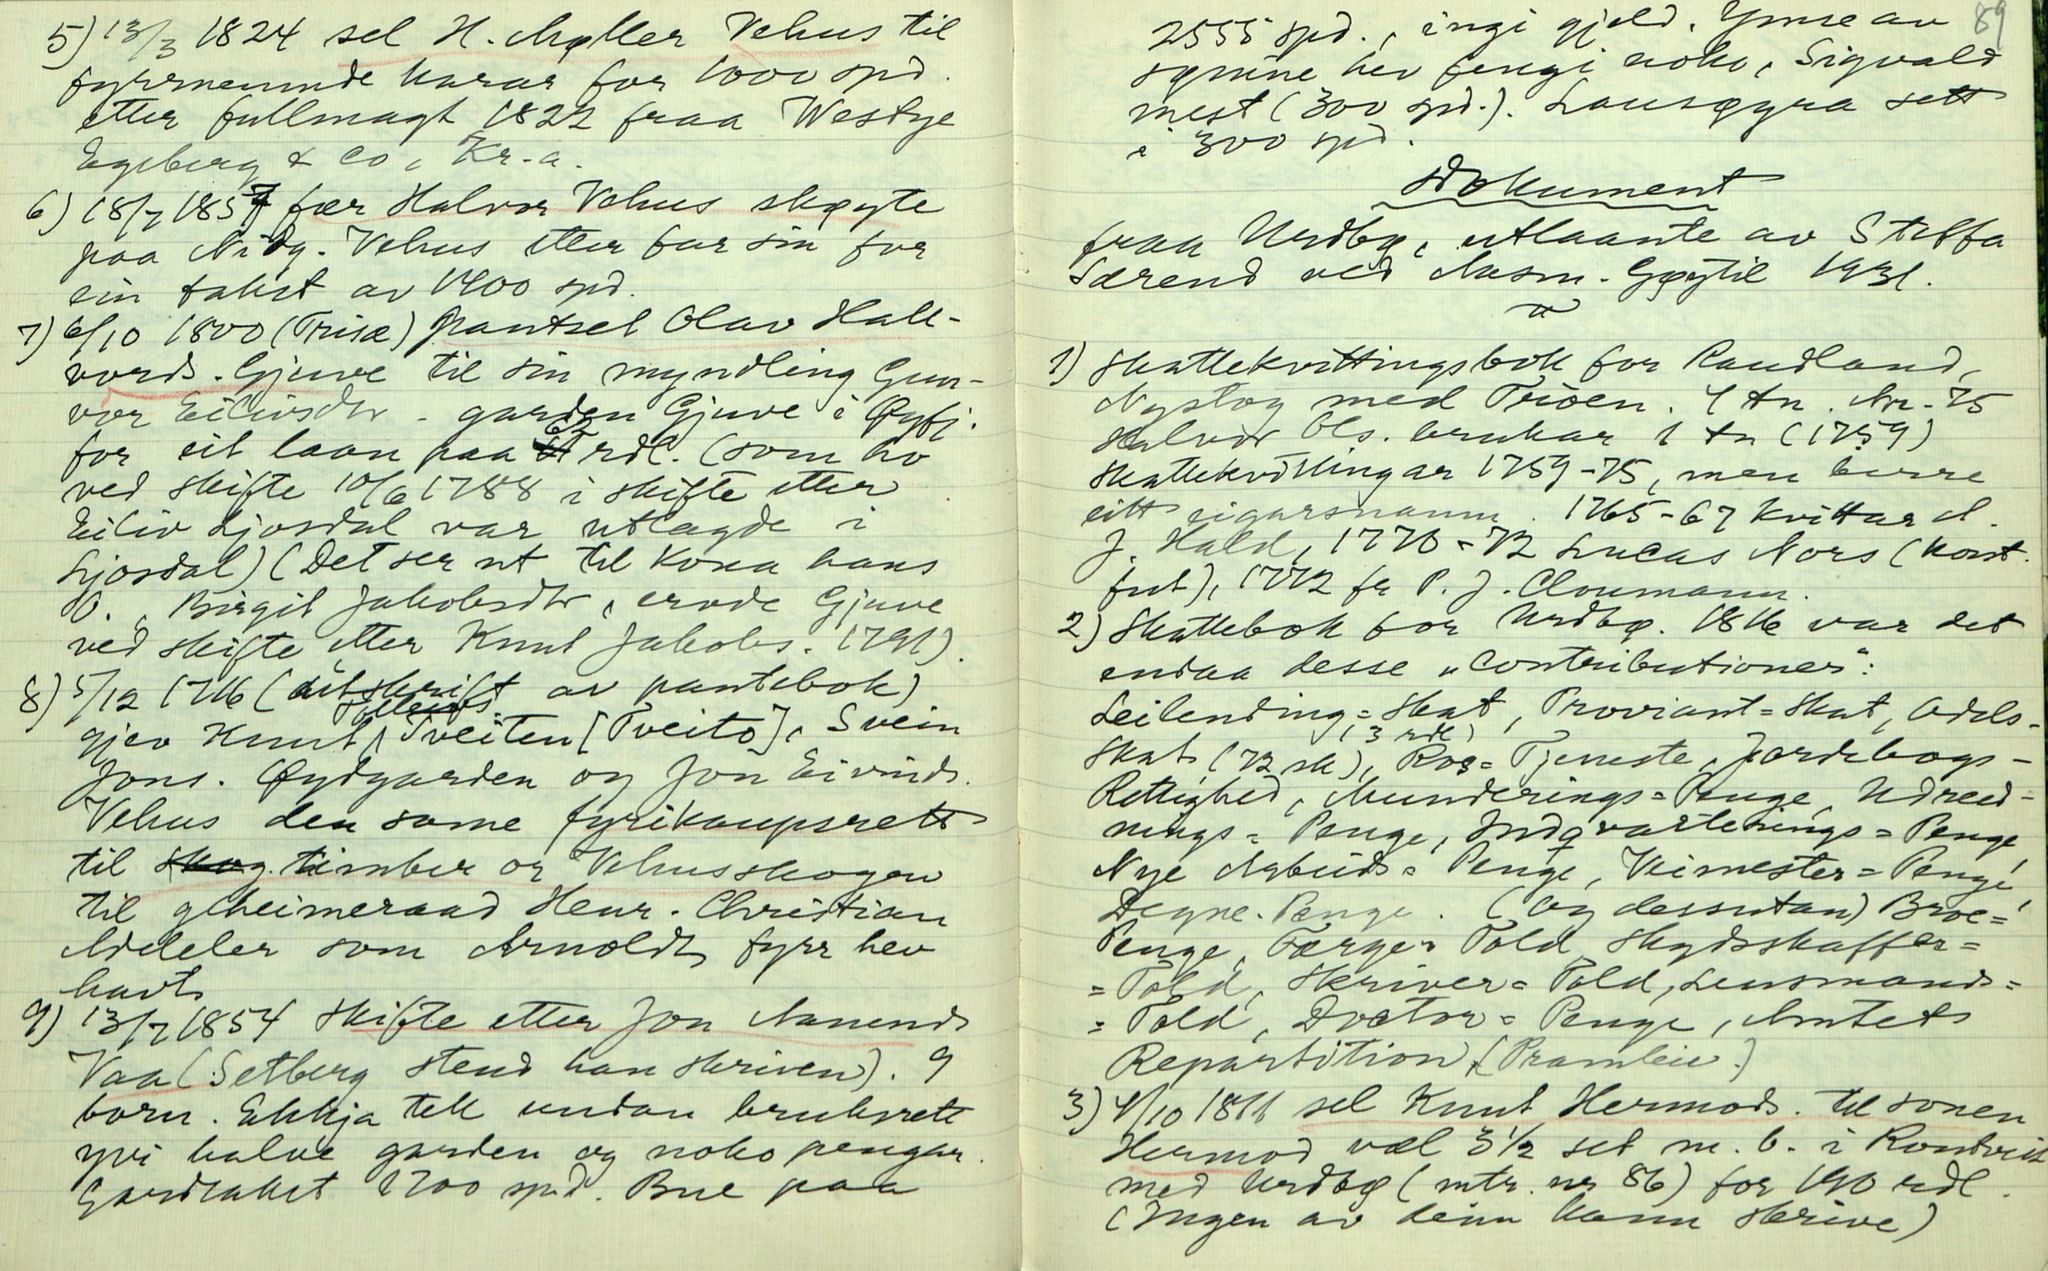 5) 13/3 1824 sel H. Møller Vehus til
fyrrnemnde karar for 1000 spd.
etter fullmagt 1822 fraa Westye
Egeberg & Co, Kr.a.
6) 18/7 1857 fær Halvor Vehus skøyte
paa Nidg. Vehus etter far sin for
ein takst av 1400 spd.
7) 6/10 1800 (Trisæ) pantsel Olav Hall-
vords. Gjuve til sin myndling Gun-
vor Eilivsdtr. garden Gjuve i Øyfj.
for eit laan paa 62 rdl. (som ho
ved skifte 10/6 1788 i skifte etter
Eiliv Ljosdal var utlagde i
Ljosdal) (Det ser ut til kona hans
O., Birgit Jakobsdtr, ervde Gjuve
ved skifte etter Knut Jakobs. 1791).
8) 5/12 1716 (utskrift av pantebok)
gjev Knut Tveiten [Tveito], Svein
Jons. Øydgarden og Jon Eivinds.
Vehus den same fyrikaupsrett
til skog. timber or Vehusskogen
til geheimeraad Henr. Christian
Adeler som Arnoldt fyrr hev
havt
9) 13/7 1854 skifte etter Jon Aanunds
Vaa (Setberg stend han skriven). 9
born. Ekkja tek undan bruksrett
yvi halve garden og noko pengar.
Gardtakst 1700 spd. Bue paa
89
2555 spd., ingi gjeld. Ymse av
sønine hev fengi noko, Sigvald
mest (300 spd.). Lausøyra sett
i 300 spd.
Dokument
fraa Urdbø, utlaante av Steffa
Særend ved Aasm. Gøytil 1931.
1) Skattekvittingsbok for Raudland,
Nystog med Trioen. 4 tn. Nr. 75
Halvor Ols. brukar 1 tn (1759)
Skattekvittingar 1759-75, men berre
eitt eigarsnamn. 1765-67 kvittar A.
J. Hald, 1770-72 Lucas Nors (konst.
fut), 1772 fr P. J. Cloumann.
2) Skattebok for Urdbø. 1816 var det
endaa desse "Contributioner":
Leilending=Skat, Proviant=Skat, Odels-
Skat (72 sk), Ros=Tjeneste (3 rdl), Jordebogs-
Rettighed, Munderings=Penge, Udred-
nings=Penge, Indqvarterings=Penge,
Nye Arbeids=Penge, Veimester=Penge,
Degne-Penge. (Og dessutan) Broe=
Penge, Færge=Told, Skydsskaffer=
=Told, Skriver=Told, Lensmands=
=Told, Doctor=Penge, Amtets
Repartition, (Pramleie)
3) 4/10 1811 sel Knut Hermods. til sonen
Hermod væl 3½ set m. b. i Rontvit
med Urdbø (mtr. nr 86) for 190 rdl.
(Ingen av deim kann skrive)